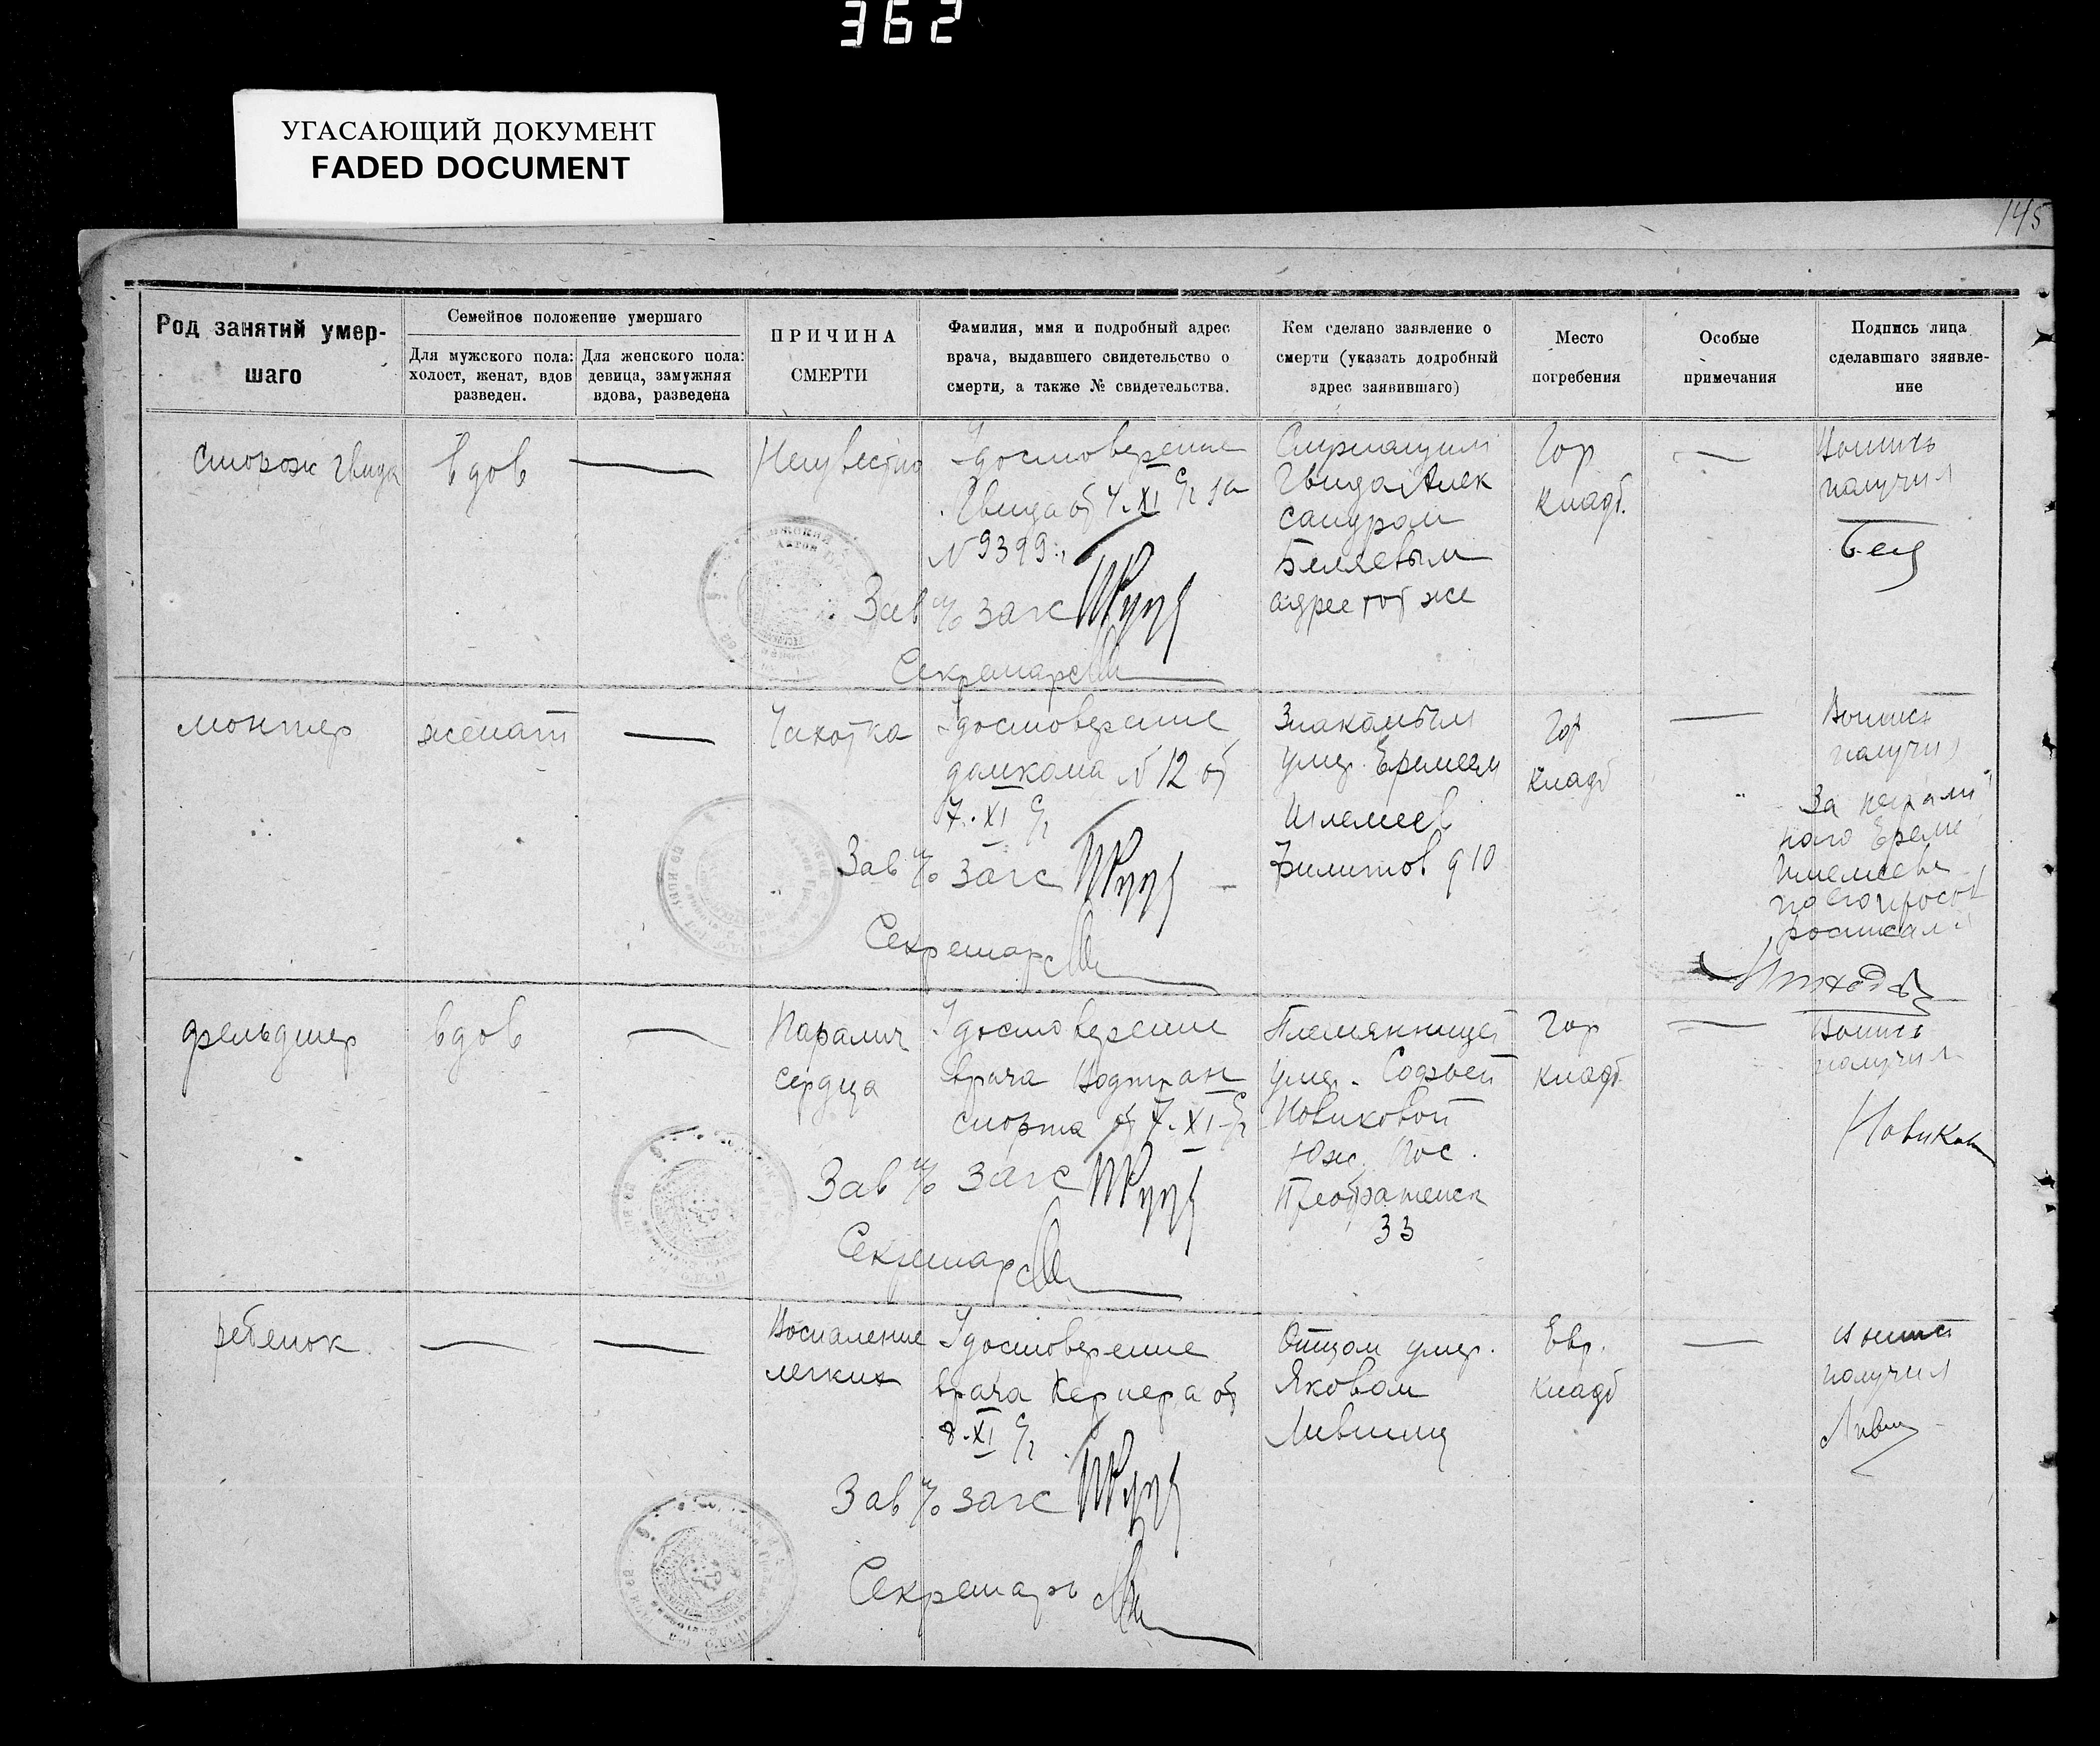 362
УГАСАЮЩИЙ ДОКУМЕНТ
FADED DOCUMENT
145
Род занятий умер-
шаго
Семейное положение умершаго
Для мужского пола:
холост, женат, вдов
разведен.
Для женского пола:
девица, замужняя
вдова, разведена
ПРИЧИНА
СМЕРТИ
Фамилия, ммя и подробный адрес
врача, выдавшего свидетельство о
смерти, а также № свидетельства.
Кем сделано заявление о
смерти (указать додробный
адрес заявившаго)
Место
погребения
Особые
примечания
Подпись лица
сделавшаго зяявле-
ние
сторож Гвида
вдов
—
Неизвестно
Удостоверение
Гвида от 4.XI с/г за
N 9399
Зав п/о загс
Секретарь
Гвида Алек
сандром
Беляевым
адрес тот же
Гор
кладб.
—
Выпись
получил
монтер
женат
—
Чахотка
Удостоверение
домкома N 12 от
7.XI с/г
Зав п/о загс
Секретарь
умер. Еремеем
Филитов д 10
Гор
кладб
—
Выпись
получил
За неграмот
ного Ереме
по его просьб
росписал
фельдшер
вдов
—
Паралич
сердца
Удостоверение
врача Водтран
спорта от 7.XI с/г
Зав п/о загс
Секретарь
Племянницей
умер. Софьей
Новиковой
Юж. Пос.
Преображенск
33
Гор
кладб.
—
Выпись
получил
Новиков
ребенок
—
—
Воспаление
легких
Удостоверение
врача Кернера от
8.XI с/г
Зав п/о загс
Секретарь
Отцом умер.
Яковом
Лившиц
Евр.
кладб
—
Выпись
получил
Ливш